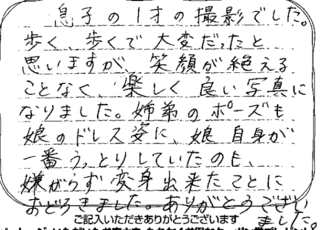 息子の1才の撮影でした。
歩く、歩くで大変だったと
思いますが、笑顔が絶える
ことなく、楽しく良い写真に
なりました。姉弟のポーズも
娘のドレス姿に、娘自身が
一番うっとりしていたのも、
嫌がらず変身出来たことに
おどろきました。ありがとうござい
ました。
ご記入いただきありがとうございます